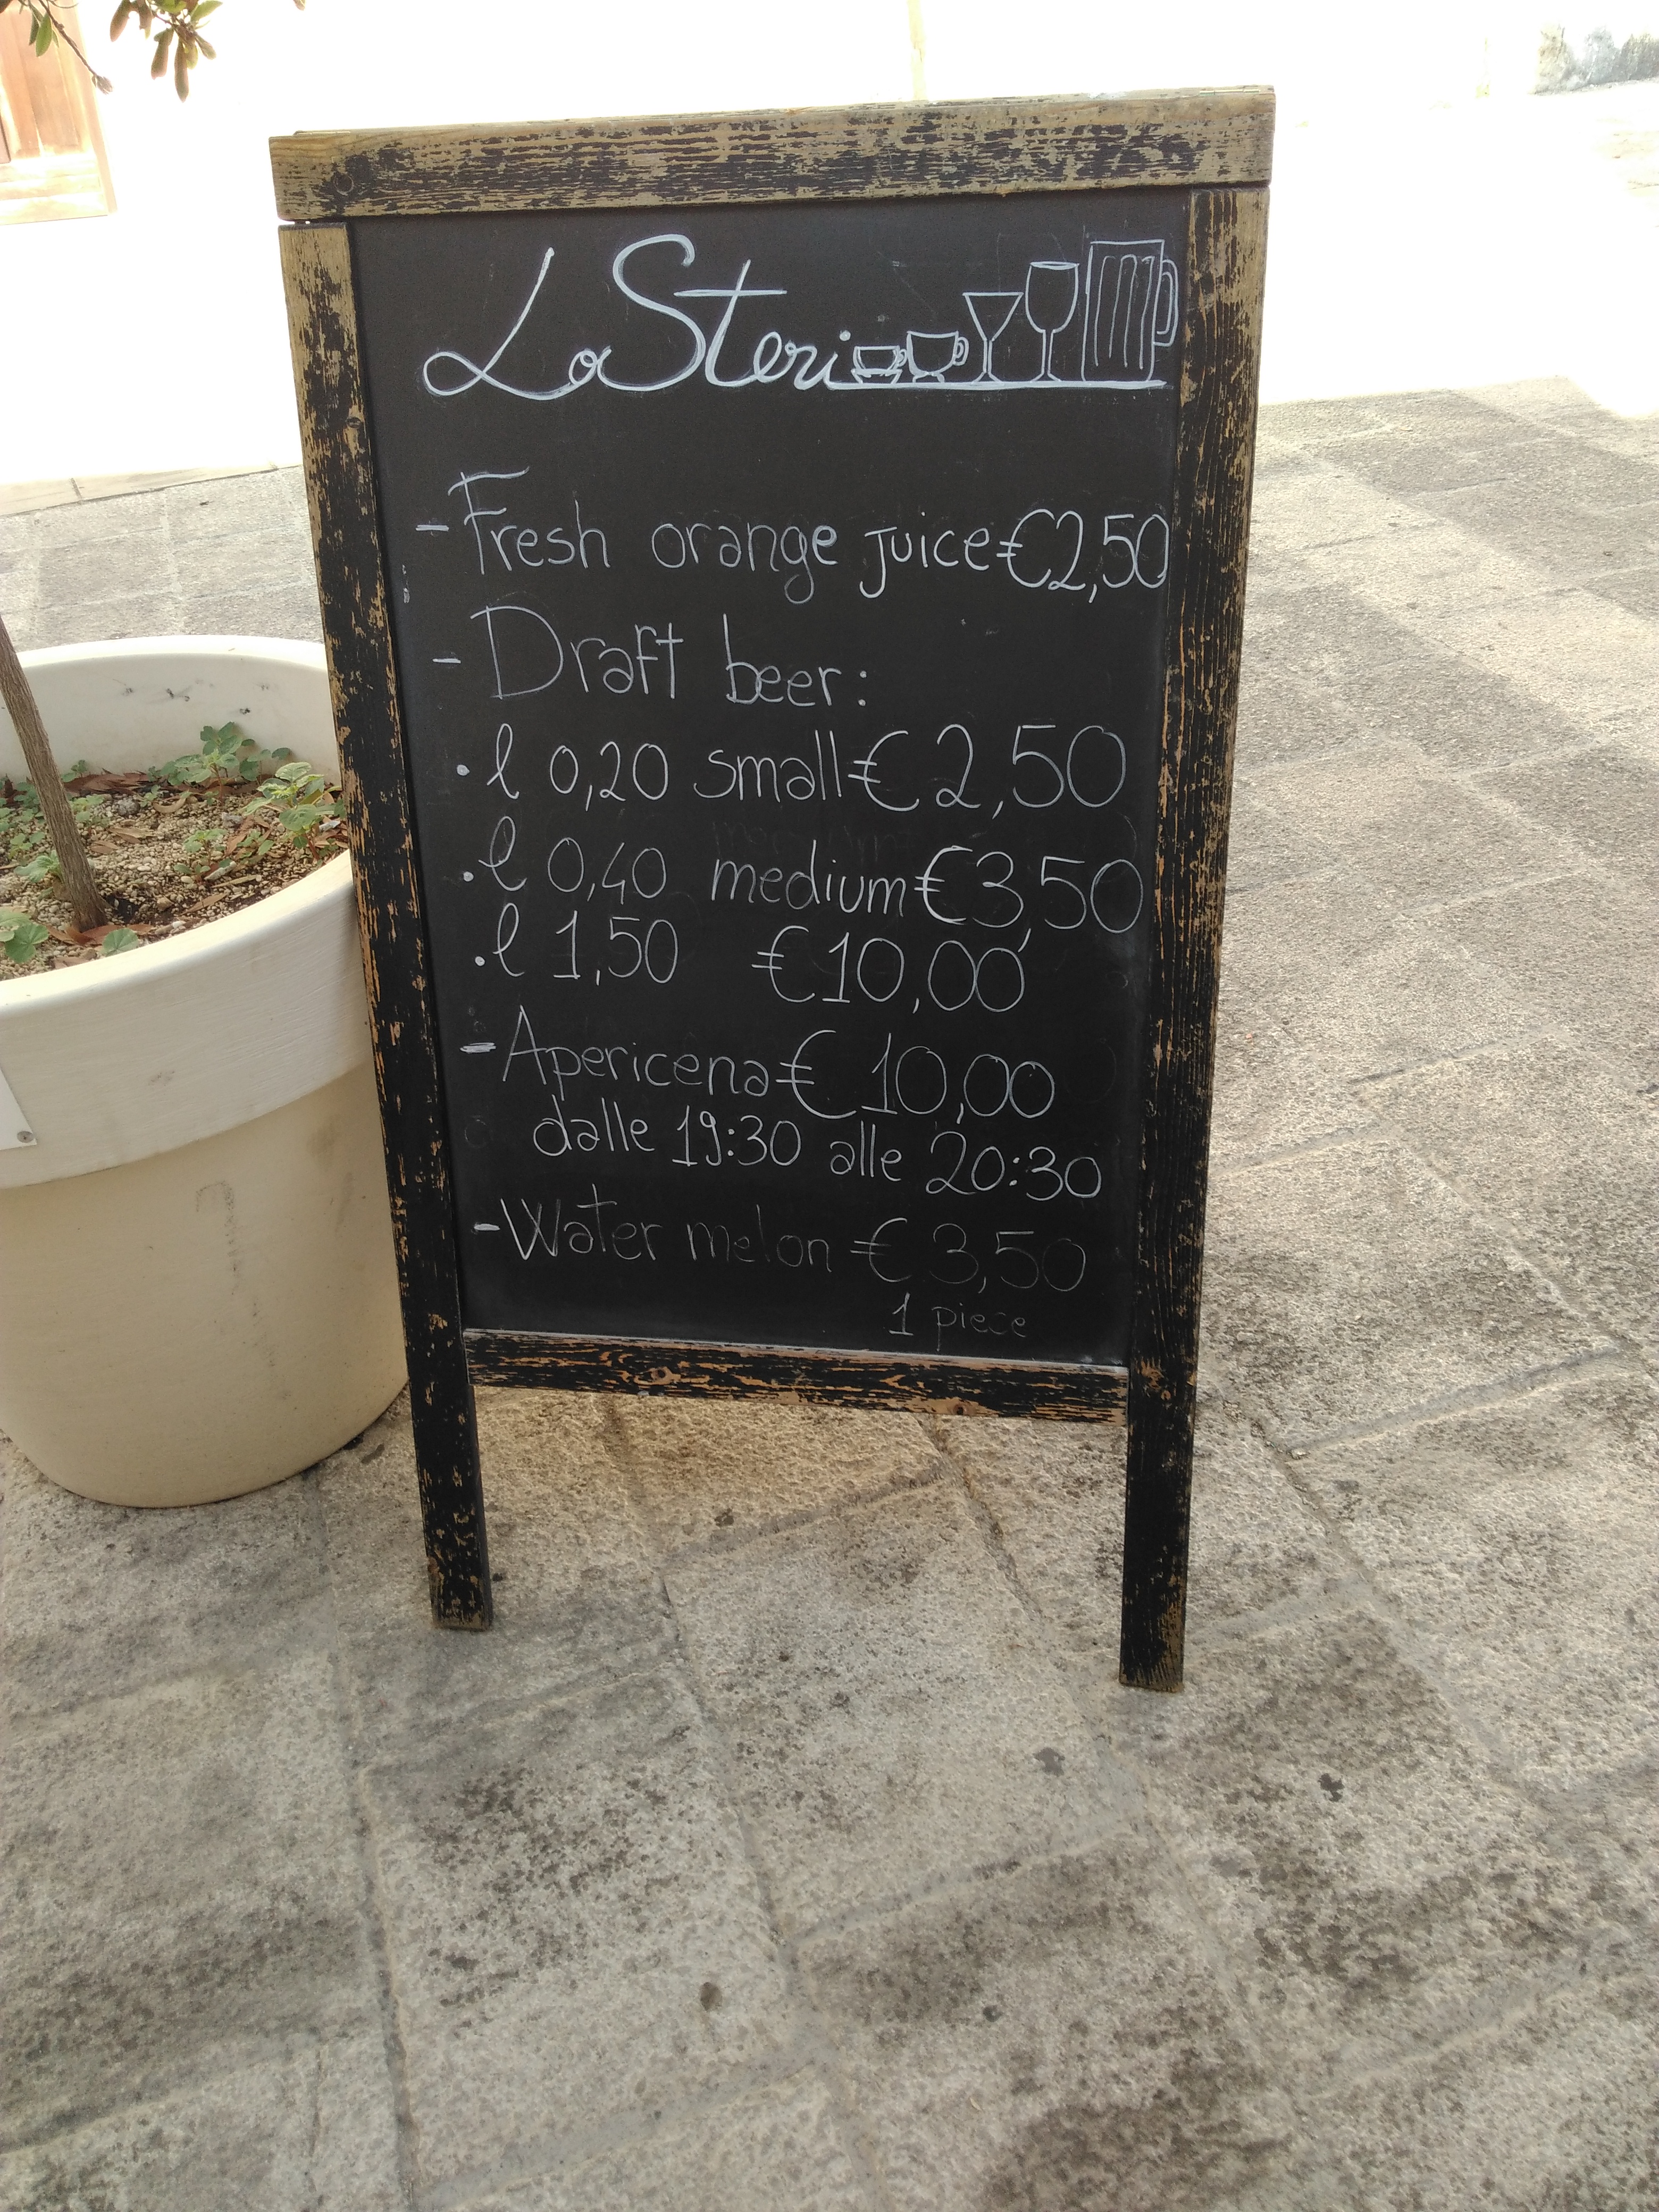 LaSteri
- Fresh orange juice €2,50
- Draft beer:
. l 0,20 small € 2,50
. l 0,40 medium €3,50
. l 1,50 €10,00
- Apericena € 10,00
dalle 19:30 alle 20:30
- Water melon € 3,50
1 piece